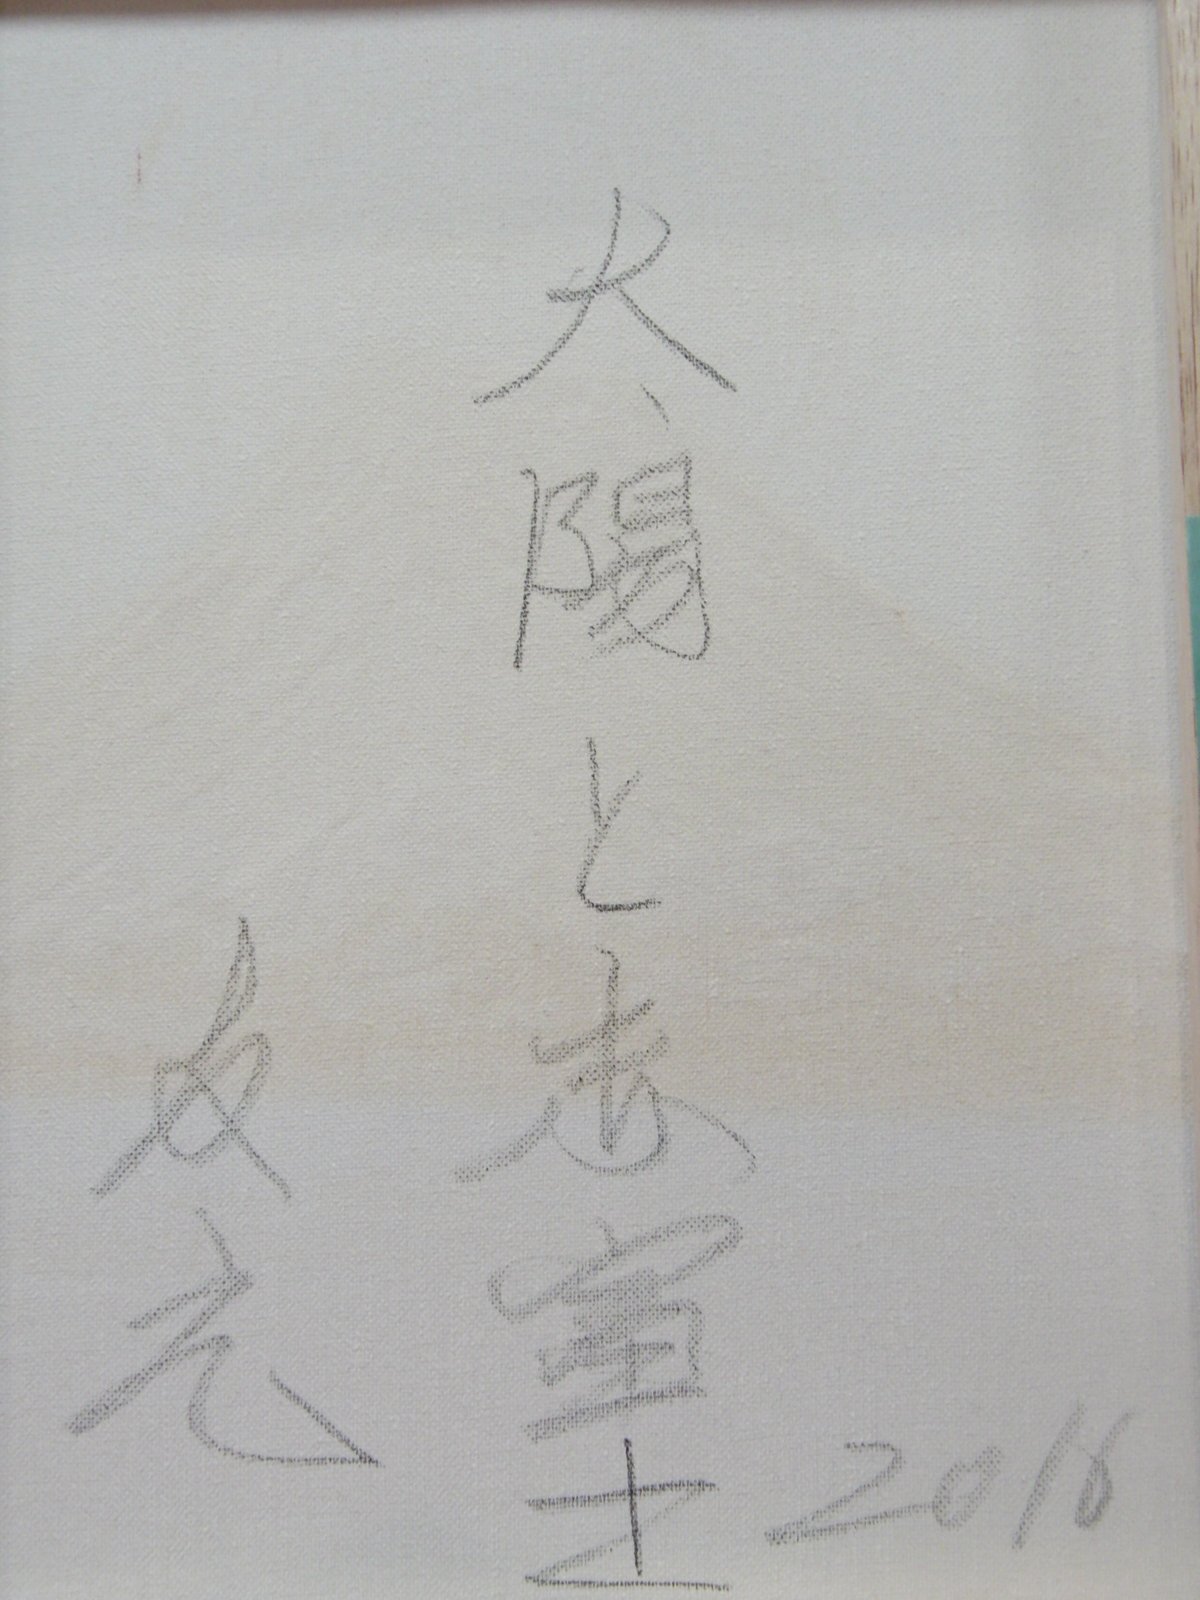 太陽と赤富士
2016